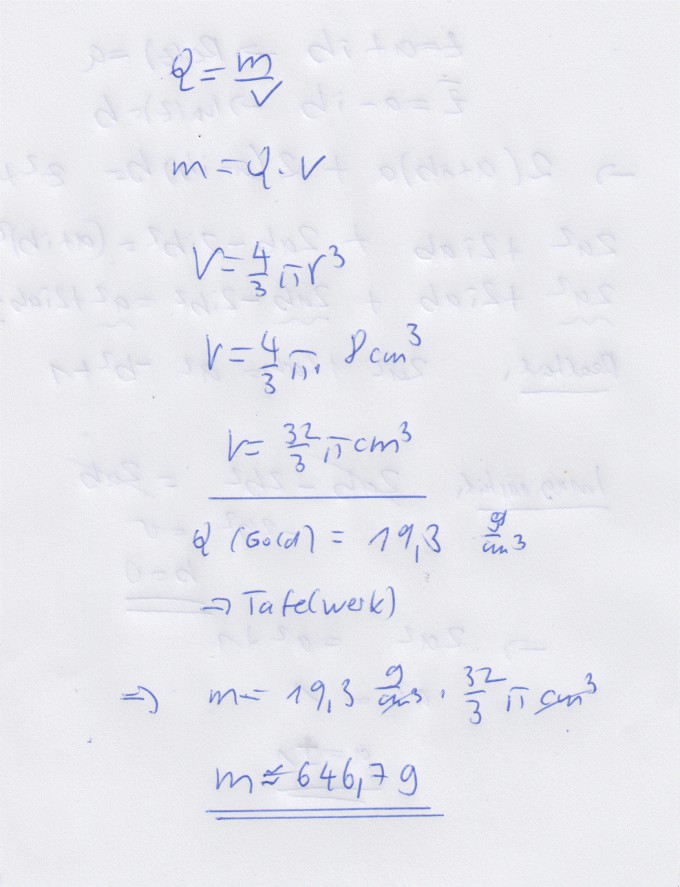 ϱ = m/V
m = ϱ · V
V = 4/3 π r³
V = 4/3 π · 8 cm³
V = 32/3 π cm³
ϱ (Gold) = 19,3 g/cm³
⇒ Tafelwerk)
⇒ m = 19,3 g/cm³ · 32/3 π cm³
m ≈ 646,7 g